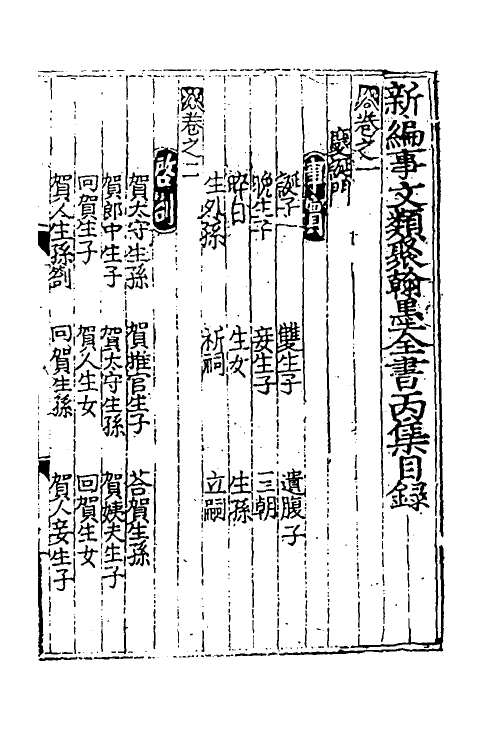 新編事文類聚翰墨全書丙集目録
卷之一
慶誕門
事實
誕子 雙生子 遺腹子
晚生子 妾生子 三朝
晬日 生女 生孫
生外孫 祈祠 立嗣
卷之二
啓劄
賀太守生孫 賀推官生子 荅賀生孫
賀郎中生子 賀太守生孫 賀姨夫生子
回賀生子 賀人生女 回賀生女
賀人生孫劄 回賀生孫 賀人妾生子